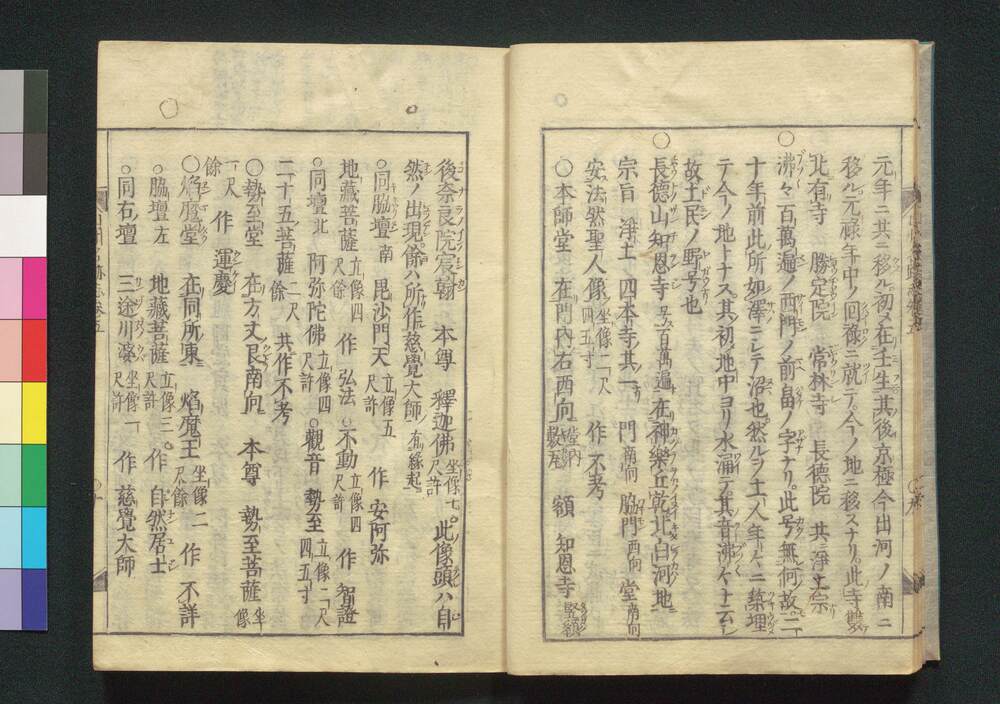 元年ニ其ニ移ル初メ在壬生其後京極今出河ノ南ニ
移ル元禄年中ノ回禄ニ就テ今ノ地ニ移スナリ此寺雙
北有寺 勝定院 常林寺 長徳院 共淨土宗
○沸々百萬遍ノ西門ノ前畠ノ字ナリ此号無何故二
十年前此所如澤ニシテ沼也然ルヲ土人年々ニ築埋
テ今ノ地トナス其初地中ヨリ水涌テ其音沸々ト云
故土民ノ野号也
○長徳山知恩寺 号百萬遍 在神樂丘乾北白河地
宗旨 淨土四本寺其一 門 南向 脇門 西向 堂 南向
安法然聖人像 坐像二尺四五寸 作不考
○本師堂 在門内右西向 堂内敷瓦 額 知恩寺 竪額
後奈良院宸翰 本尊 釋迦佛 坐像七尺許 此像頭ハ自
然ノ出現餘ハ所作慈覺大師 有縁起
○同脇壇 南 毘沙門天 立像五尺許 作 安阿弥
地藏菩薩 立像四尺餘 作 弘法 不動 立像四尺許 作 智證
○同壇 北 阿弥陀佛 立像四尺許 ○觀音 勢至 立像二尺四五寸
二十五菩薩 二尺餘 共作不考
○勢至堂 在方丈艮南向 本尊 勢至菩薩 坐像
一尺餘 作 運慶
○焰魔堂 在同所東 焰魔王 坐像二尺餘 作 不詳
○脇壇 左 地藏菩薩 立像三尺許 作 自然居士
○同右壇 三途川婆 坐像一尺許 作 慈覺大師